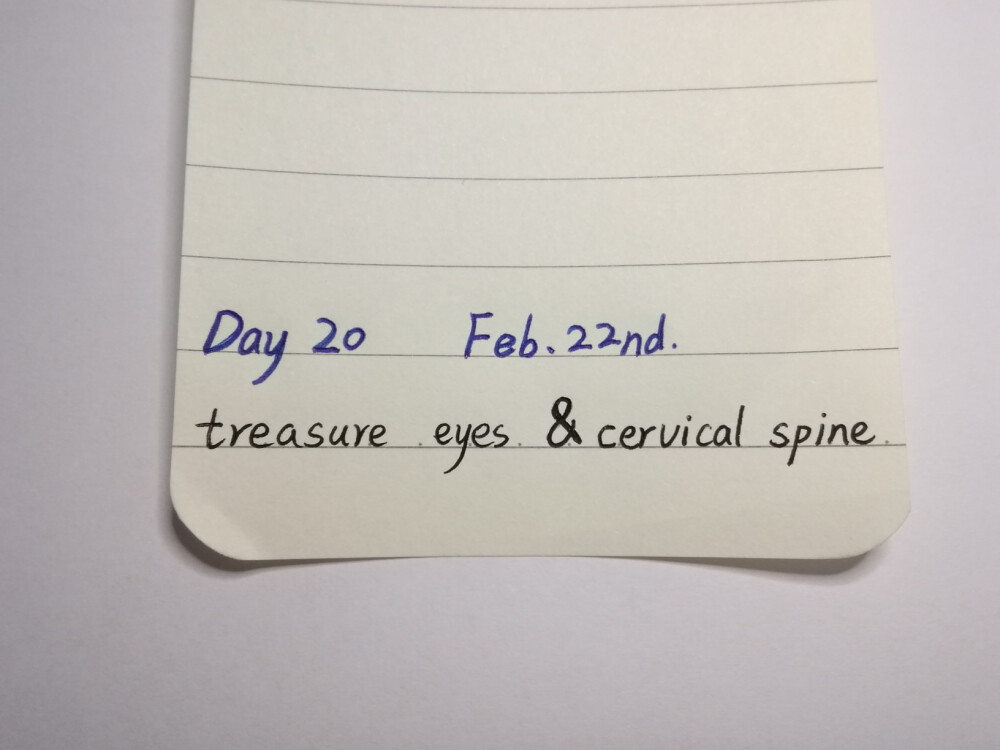 Day 20 Feb. 22nd.
treasure eyes & cervical spine.